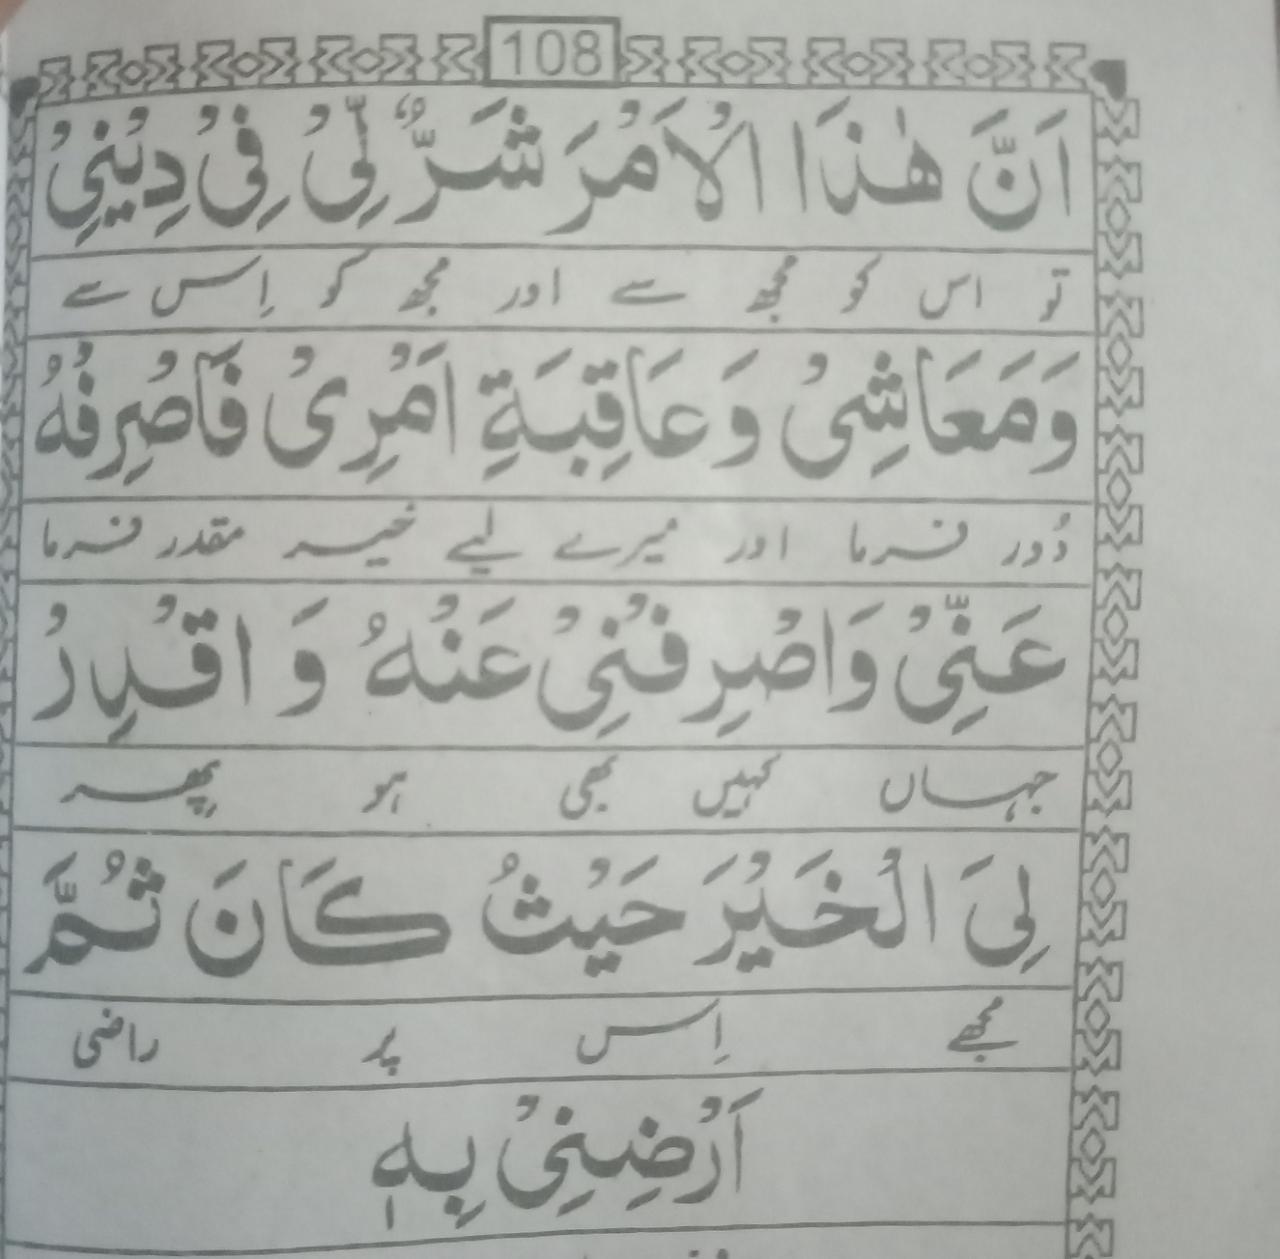 108
اَنَّ هٰذَا الْاَمْرَ شَرٌّ لِّیْ فِیْ دِیْنِیْ
تو اس کو مجھ سے اور مجھ کو اِس سے
وَمَعَاشِیْ وَعَاقِبَةِ اَمْرِیْ فَاصْرِفْهُ
دُور فرما اور میرے لیے خیر مقدر فرما
عَنِّیْ وَاصْرِفْنِیْ عَنْهُ وَ اقْدِرْ
جہاں کہیں بھی ہو پِھر
لِیَ الْخَیْرَ حَیْثُ کَانَ ثُمَّ
مجھے اِس پر راضی
اَرْضِنِیْ بِهٖ